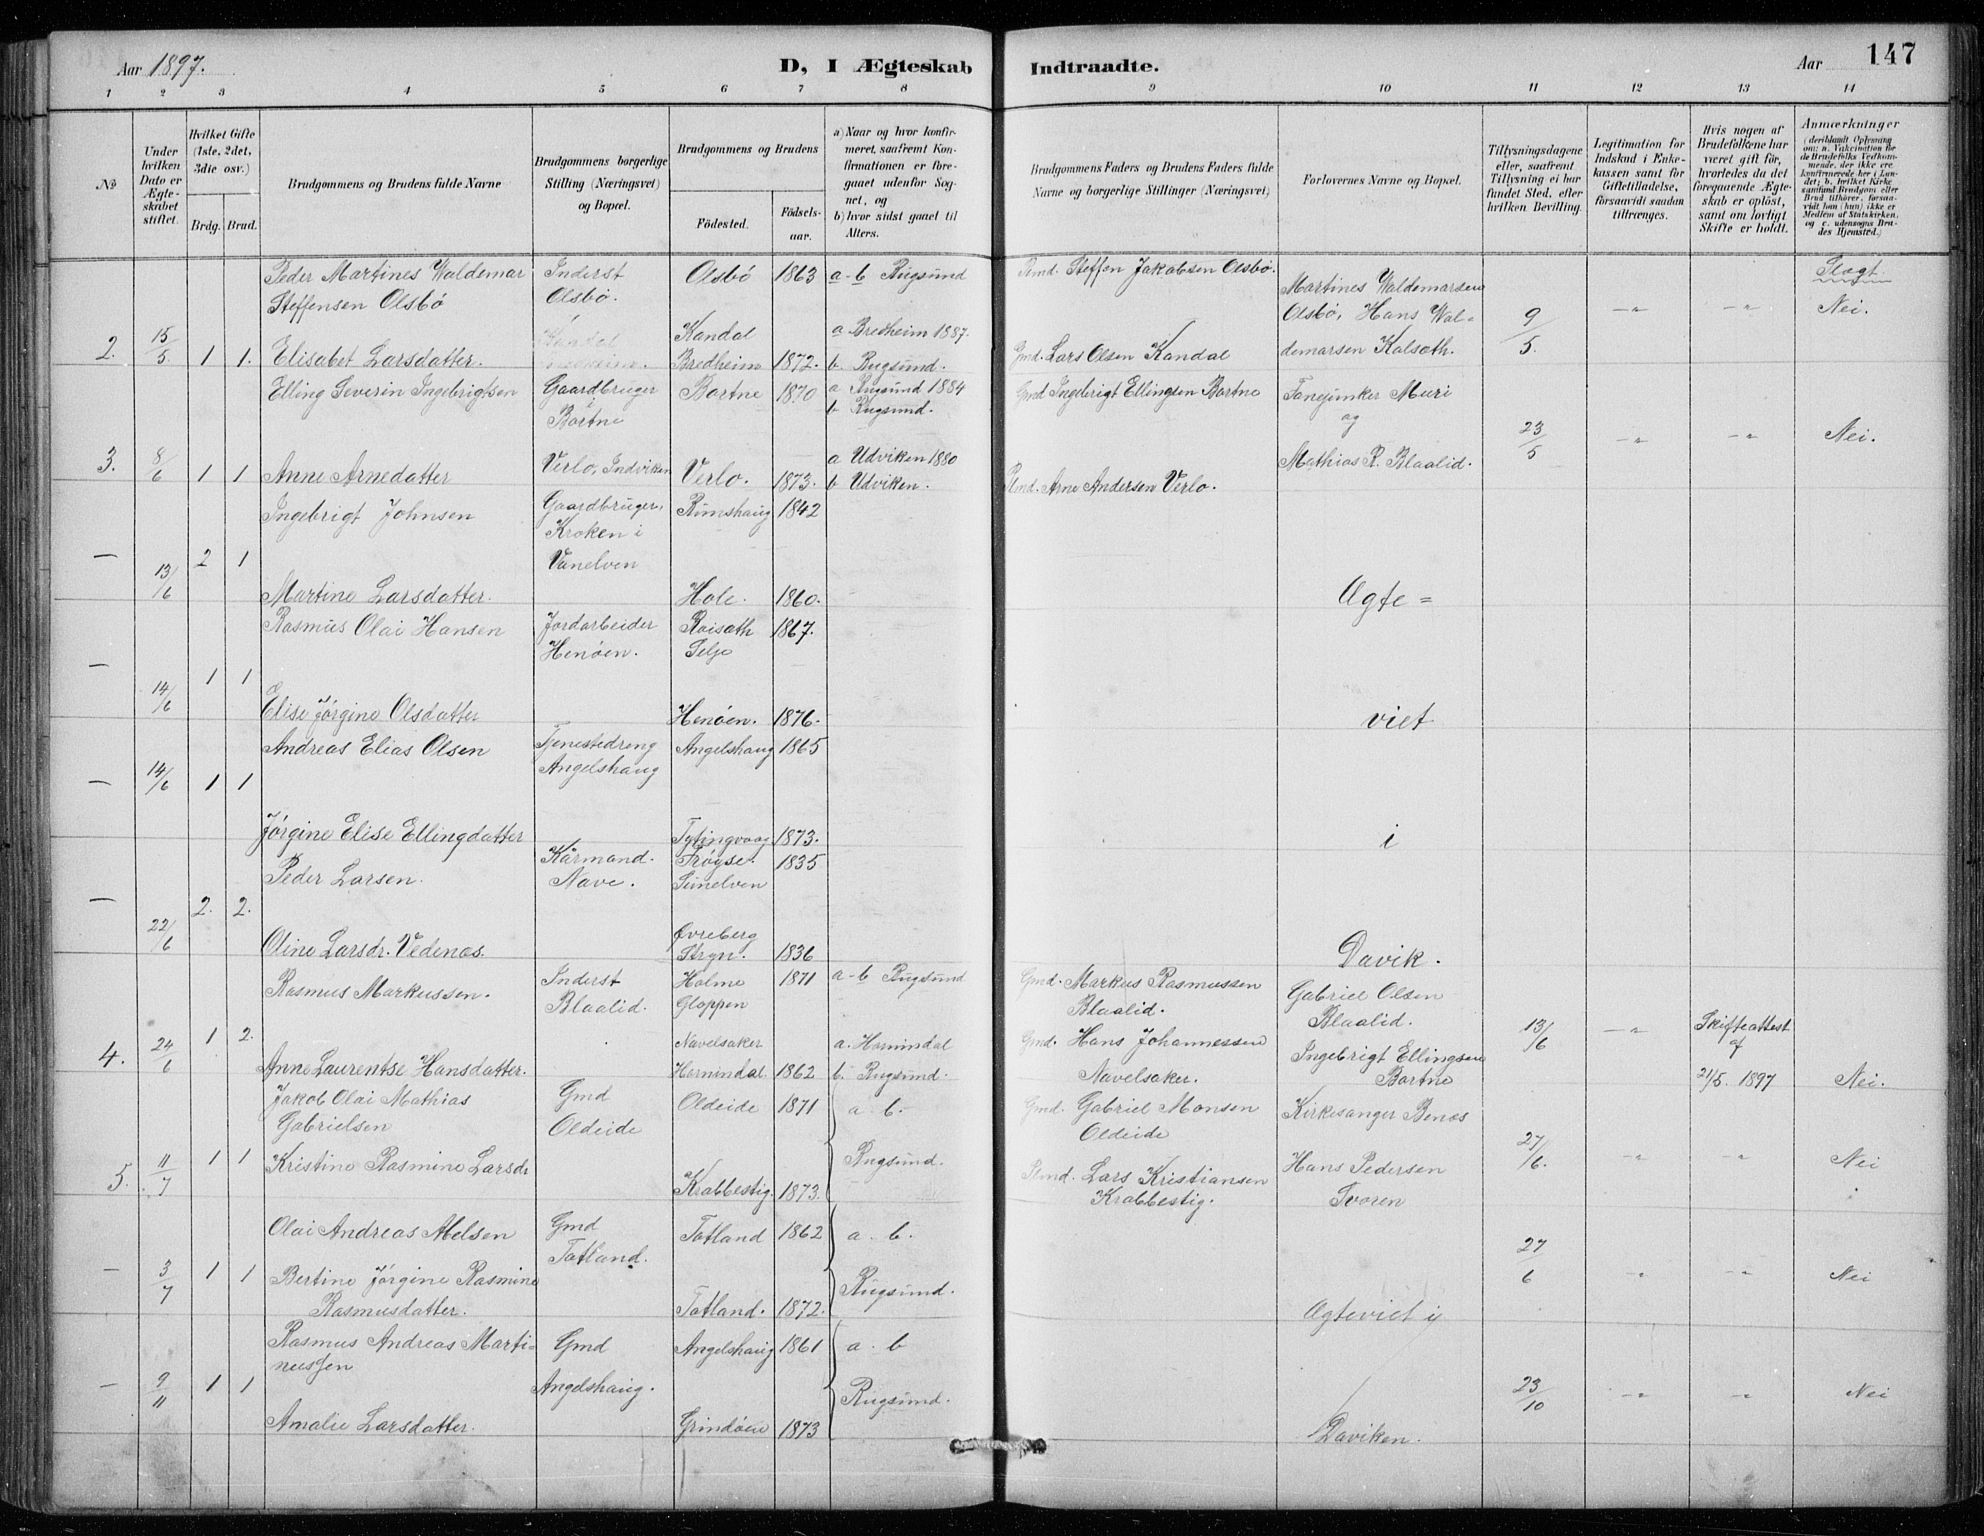 Aar 1897.
D, I Ægteskab Indtraadte.
Aar
147
1 2 3 4 5 6 7 8 9 10 11 12 13 14
No
Under hvilken Dato er Ægteskabet stiftet.
Hvilket Gifte (1ste, 2det, 3die osv.)
Brdg. Brud.
Brudgommens og Brudens fulde Navne
Brudgommens borgerlige Stilling (Næringsvei) og Bopæl.
Brudgommens og Brudens
Födested.
Födsels-aar.
a) Naar og hvor konfirmeret, saafremt Konfirmationen er foregaaet udenfor Sognet, og
b) hvor sidst gaaet til Alters.
Brudgommens Faders og Brudens Faders fulde Navne og borgerlige Stillinger (Næringsvei)
Forlovernes Navne og Bopæl.
Tillysningsdagene eller, saafremt Tillysning ei har fundet Sted, efter hvilken Bevilling.
Legitimation for Indskud i Enkekassen samt for Giftetilladelse, forsaavidt saadan tiltrænges.
Hvis nogen af Brudefolkene har været gift før, hvorledes da det foregaaende Ægteskab er oplöst, samt om lovligt Skifte er holdt.
Anmærkninger
(deriblandt Oplysning om: a. Vakcination for de Brudefolks Vedkommende, der ikke ere konfirmerede her i Landet; b. hvilket Kirkesamfund Brudgom eller Brud tilhører, forsaavidt han (hun) ikke er Medlem af Statskirken, og c. udensogns Brudes Hjemsted.)
Peder Martines Waldemar Inderst Olsbö 1863 a-b Rugsund Steffen Jakobsen Olsbö. Slegt
Steffensen Olsbö Olsbö. Martines Waldemarsen Olsbö, Hans Wal- Nei.
2. 15/5 1 1. Elisabet Larsdatter. Kandal Bredheim 1872. a Bredheim 1887. b. Rugsund. Gmd. Lars Olsen Kandal demarsen Kalsath. 9/5.
Elling Severin Ingebrigtsen Gaardbruger i Bortne Bortne 1870 a Rugsund 1884 b Rugsund. Gmd Ingebrigt Ellingsen Bortne Muri og
3. 8/6 1 1 Anne Arnedatter Verlo, Indviken Verlo. 1873. a Udviken 1880 b Udviken. Arne Andersen Verlo. Mathias R. Blaalid. 23/5 Nei.
Ingebrigt Johnsen Gaardbruger, Kroken i Vanelven Rimshaug 1842
— 13/6 2 1 Martine Larsdatter. Hole. 1860. Ægte=
Rasmus Olai Hansen Jordarbeider Henöen. Selje 1867.
— 14/6 1 1 Elise Jörgine Olsdatter Henöen. 1876. viet
Andreas Elias Olsen Tjenestedreng Angelshaug Angelshaug 1865
— 14/6 1 1 Jörgine Elise Ellingdatter 1873. i
Peder Larsen. Kårmand. Nave. Sunelven 1835
— 22/6 2. 2. Oline Larsdr. Vedenæs. Øvreberg Stryn. 1836 Davik.
Rasmus Markussen. Inderst Blaalid. Holme Gloppen 1871 a-b Rugsund Gmd. Markus Rasmussen Blaalid. Gabriel Olsen Blaalid.
4. 24/6 1 2. Anne Laurentse Hansdatter. Navelsaker Hornindal 1862 a. Hornindal b. Rugsund. Gmd. Hans Johannessen Navelsaker. Ingebrigt Ellingsen Bortne 13/6 Skifteattest af 21/5. 1897 Nei.
Jakob Olai Mathias Gabrielsen Gmd Oldeide Oldeide 1871 a. b. Gmd. Gabriel Monsen Oldeide Kirkesanger Benæs
5. 11/7 1 1 Kristine Rasmine Larsdr Krabbestig. 1873. Rugsund. Lars Kristiansen Krabbestig. Hans Pedersen Tvoren 27/6. Nei
Olai Andreas Abelsen Gmd Totland. Totland 1862 a. b.
— 3/7 1 1 Bertine Jörgine Rasmine Rasmusdatter. Totland. 1872. Rugsund. Ægteviet i 27/6 Nei
Rasmus Andreas Martinussen Gmd Angelshaug. Angelshaug 1861 a. b
— 9/11 1 1 Amalie Larsdatter. Grindöen 1873 Rugsund. Daviken. 23/10 Nei